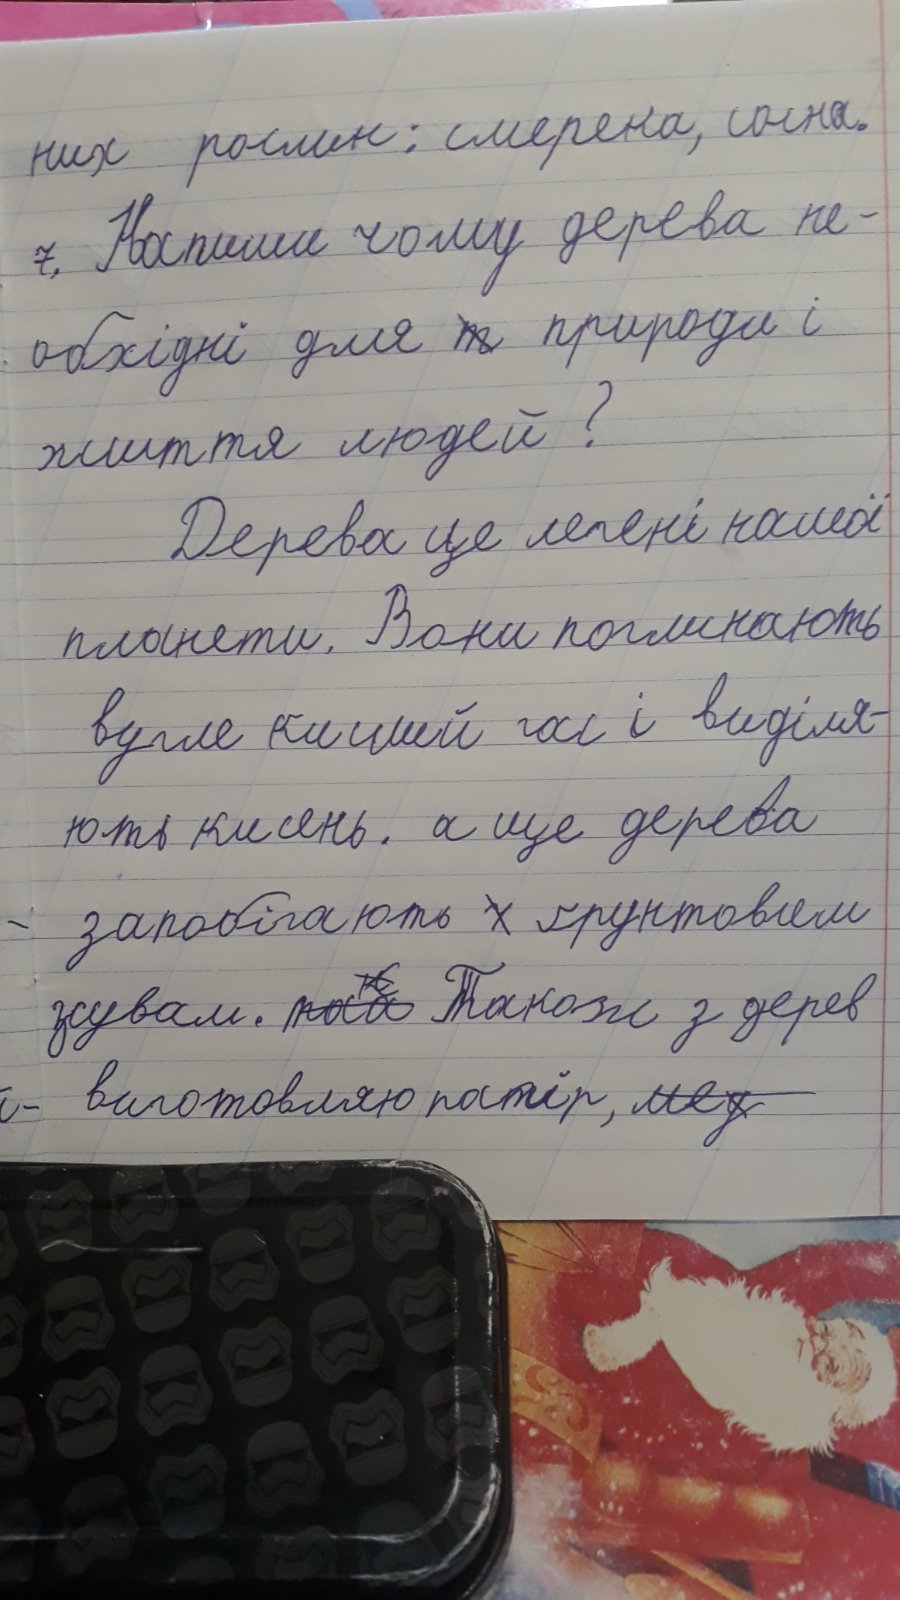 них рослин: смерена, сосна.
7. Напиши чому дерева не-
обхідні для природи і
життя людей?
Дерева це легені нашої
планети. Вони поглинають
вугле кислий газ і виділя-
ють кисень. а ще дерева
запобігають ґрунтовим
зсувам. Також з дерев
виготовляю папір,